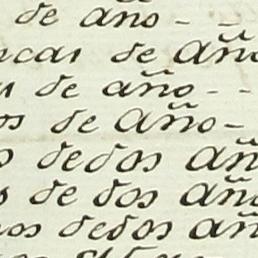 de año - -
ncas de año
s de año - -
os de año -
s dedos añ
s de dos añ
nos dedos añ